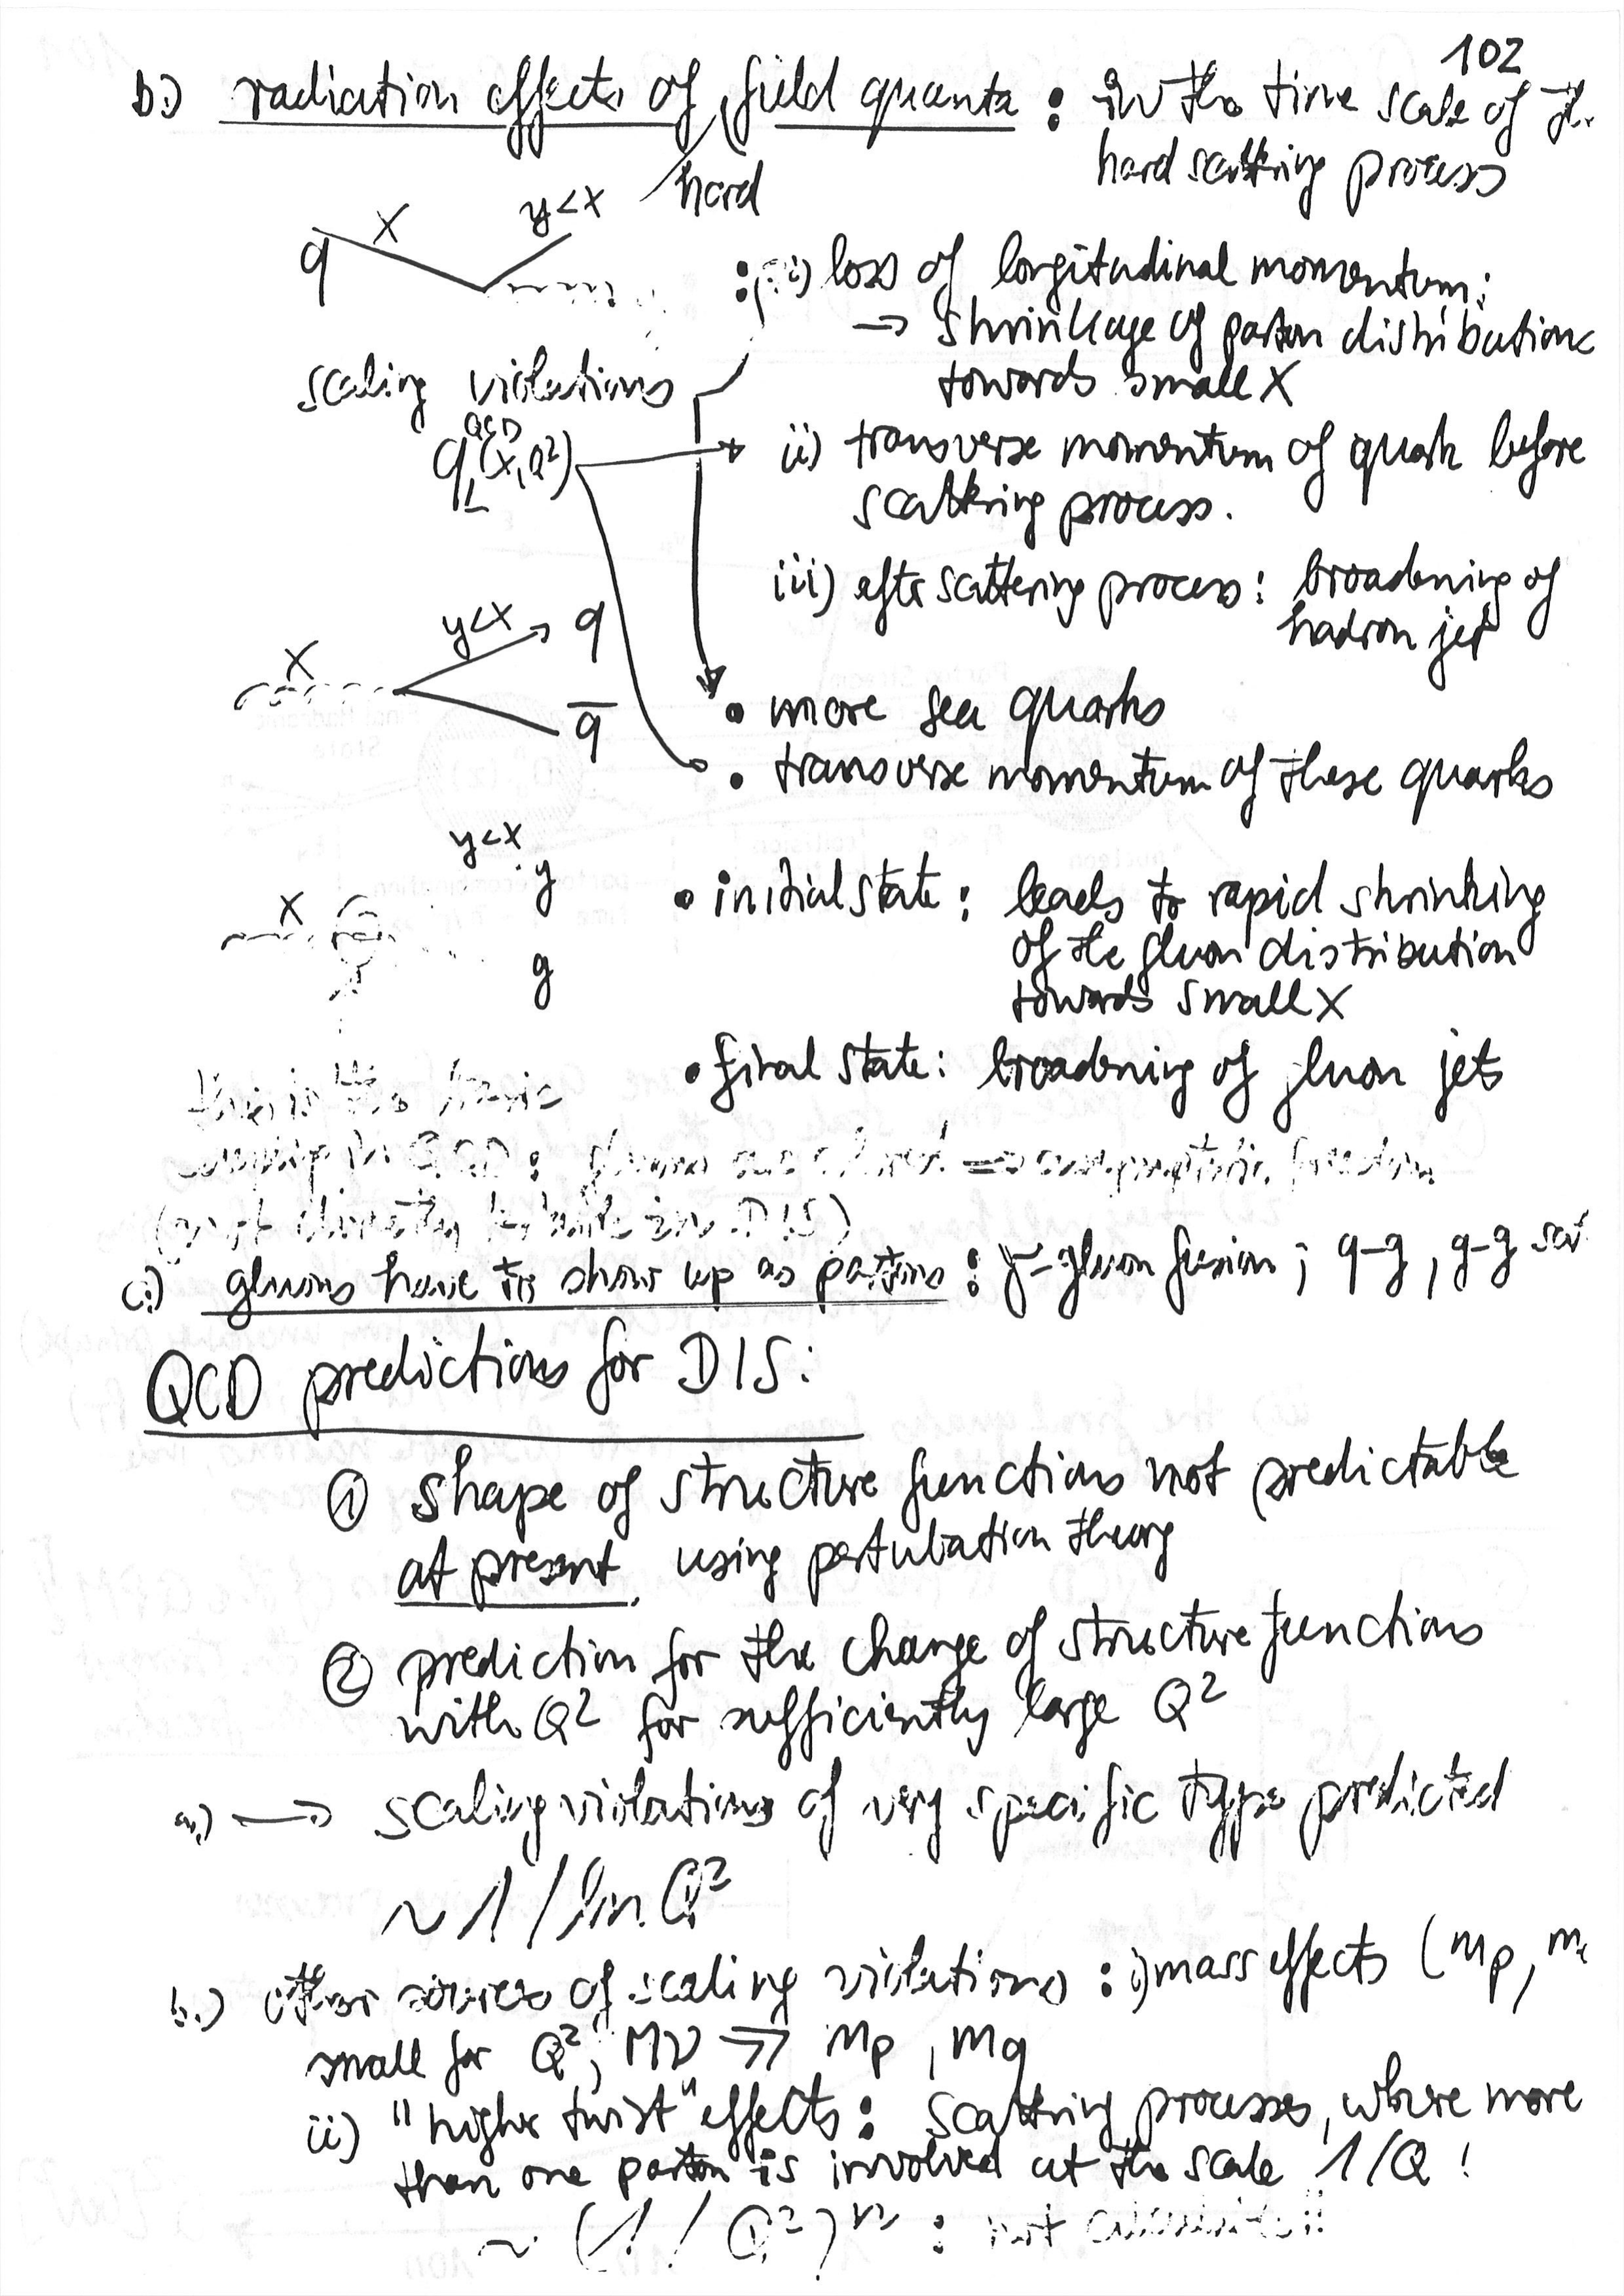 102
b.) radiation effects of field quanta : in the time scale of the
hard
hard scattering process
q x y<x
: i) loss of longitudinal momentum;
→ shrinkage of parton distributions
towards small x
scaling violations
QCD
q⊥(x,Q²)
ii) transverse momentum of quark before
scattering process.
iii) after scattering process: broadening of
hadron jet
x y<x q
q̄
• more sea quarks
• transverse momentum of these quarks
y<x
x g
g
• initial state: leads to rapid shrinking
of the gluon distribution
towards small x
• final state: broadening of gluon jets
this is the basic
coupling in QCD: gluons are colored ⇒ asymptotic freedom
(not directly in DIS)
c.) gluons have to show up as partons : γ-gluon fusion ; q-g, g-g
QCD predictions for DIS:
① shape of structure functions not predictable
at present, using pertubation theory
② prediction for the change of structure functions
with Q² for sufficiently large Q²
a.) → scaling violations of very specific type predicted
~ 1/ln Q²
b.) other sources of scaling violations : i) mass effects (mp,
small for Q², Mν ≫ mp, mq
ii) "higher twist" effects: scattering processes, where more
than one parton is involved at the scale 1/Q !
~ (1/Q²)ⁿ : not